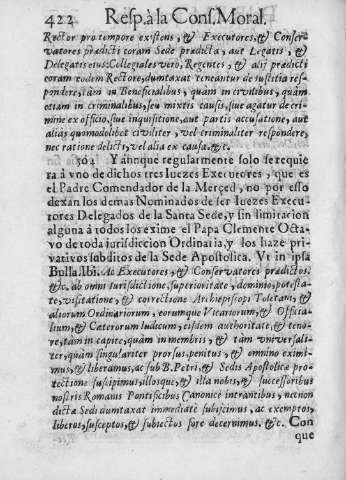 422 Resp. à la Cons. Moral.
Rector pro tempore existens, & Executores, & Conser-
vatores prædicti coram Sede prædicta, aut Legatis, &
Delegatis eius: Collegiales verò, Regentes, & alij prædicti
coram eodem Rectore, dumtaxat teneantur de iustitia res-
pondere, tàm in Beneficialibus, quàm in civilibus, quàm
etiam in criminalibus, seu mixtis causis, sive agatur de cri-
mine ex officio, sive inquisitione, aut partis accusatione, aut
aliàs quomodolibet civiliter, vel criminaliter respondere,
nec ratione delicti, vel alia ex causa. &c.
504 Y aunque regularmente solo se requie
ra à vno de dichos tres Iuezes Executores, que es
el Padre Comendador de la Merçed, no por esso
dexan los demas Nominados de ser Iuezes Execu-
tores Delegados de la Santa Sede, y sin limitacion
alguna à todos los exime el Papa Clemente Octa-
vo de toda jurisdiccion Ordinaria, y los haze pri-
vativos subditos de la Sede Apostolica. Vt in ipsa
Bulla. Ibi. Ac Executores, & Conservatores prædictos.
&c. de omni iurisdictione, superioritate, dominio, potesta-
te, visitatione, & correctione Archiepiscopi Toletani, &
aliorum Ordinariorum, eorumque Vicariorum, & Officia-
lium, & Cæterorum Iudicum, eisdem authoritate, & teno-
re, tàm in capite, quàm in membris, & tàm vniversali-
ter, quàm singulariter prorsus, penitus, & omnino eximi-
mus, & liberamus, ac sub B. Petri, & Sedis Apostolicæ pro-
tectione suscipimus, illosque, & illa nobis, & successoribus
nostris Romanis Pontificibus Canonicè intrantibus, necnon
dictæ Sedi dumtaxat immediatè subijcimus, ac exemptos,
liberos, susceptos, & subiectos fore decernimus. &c. Con
que